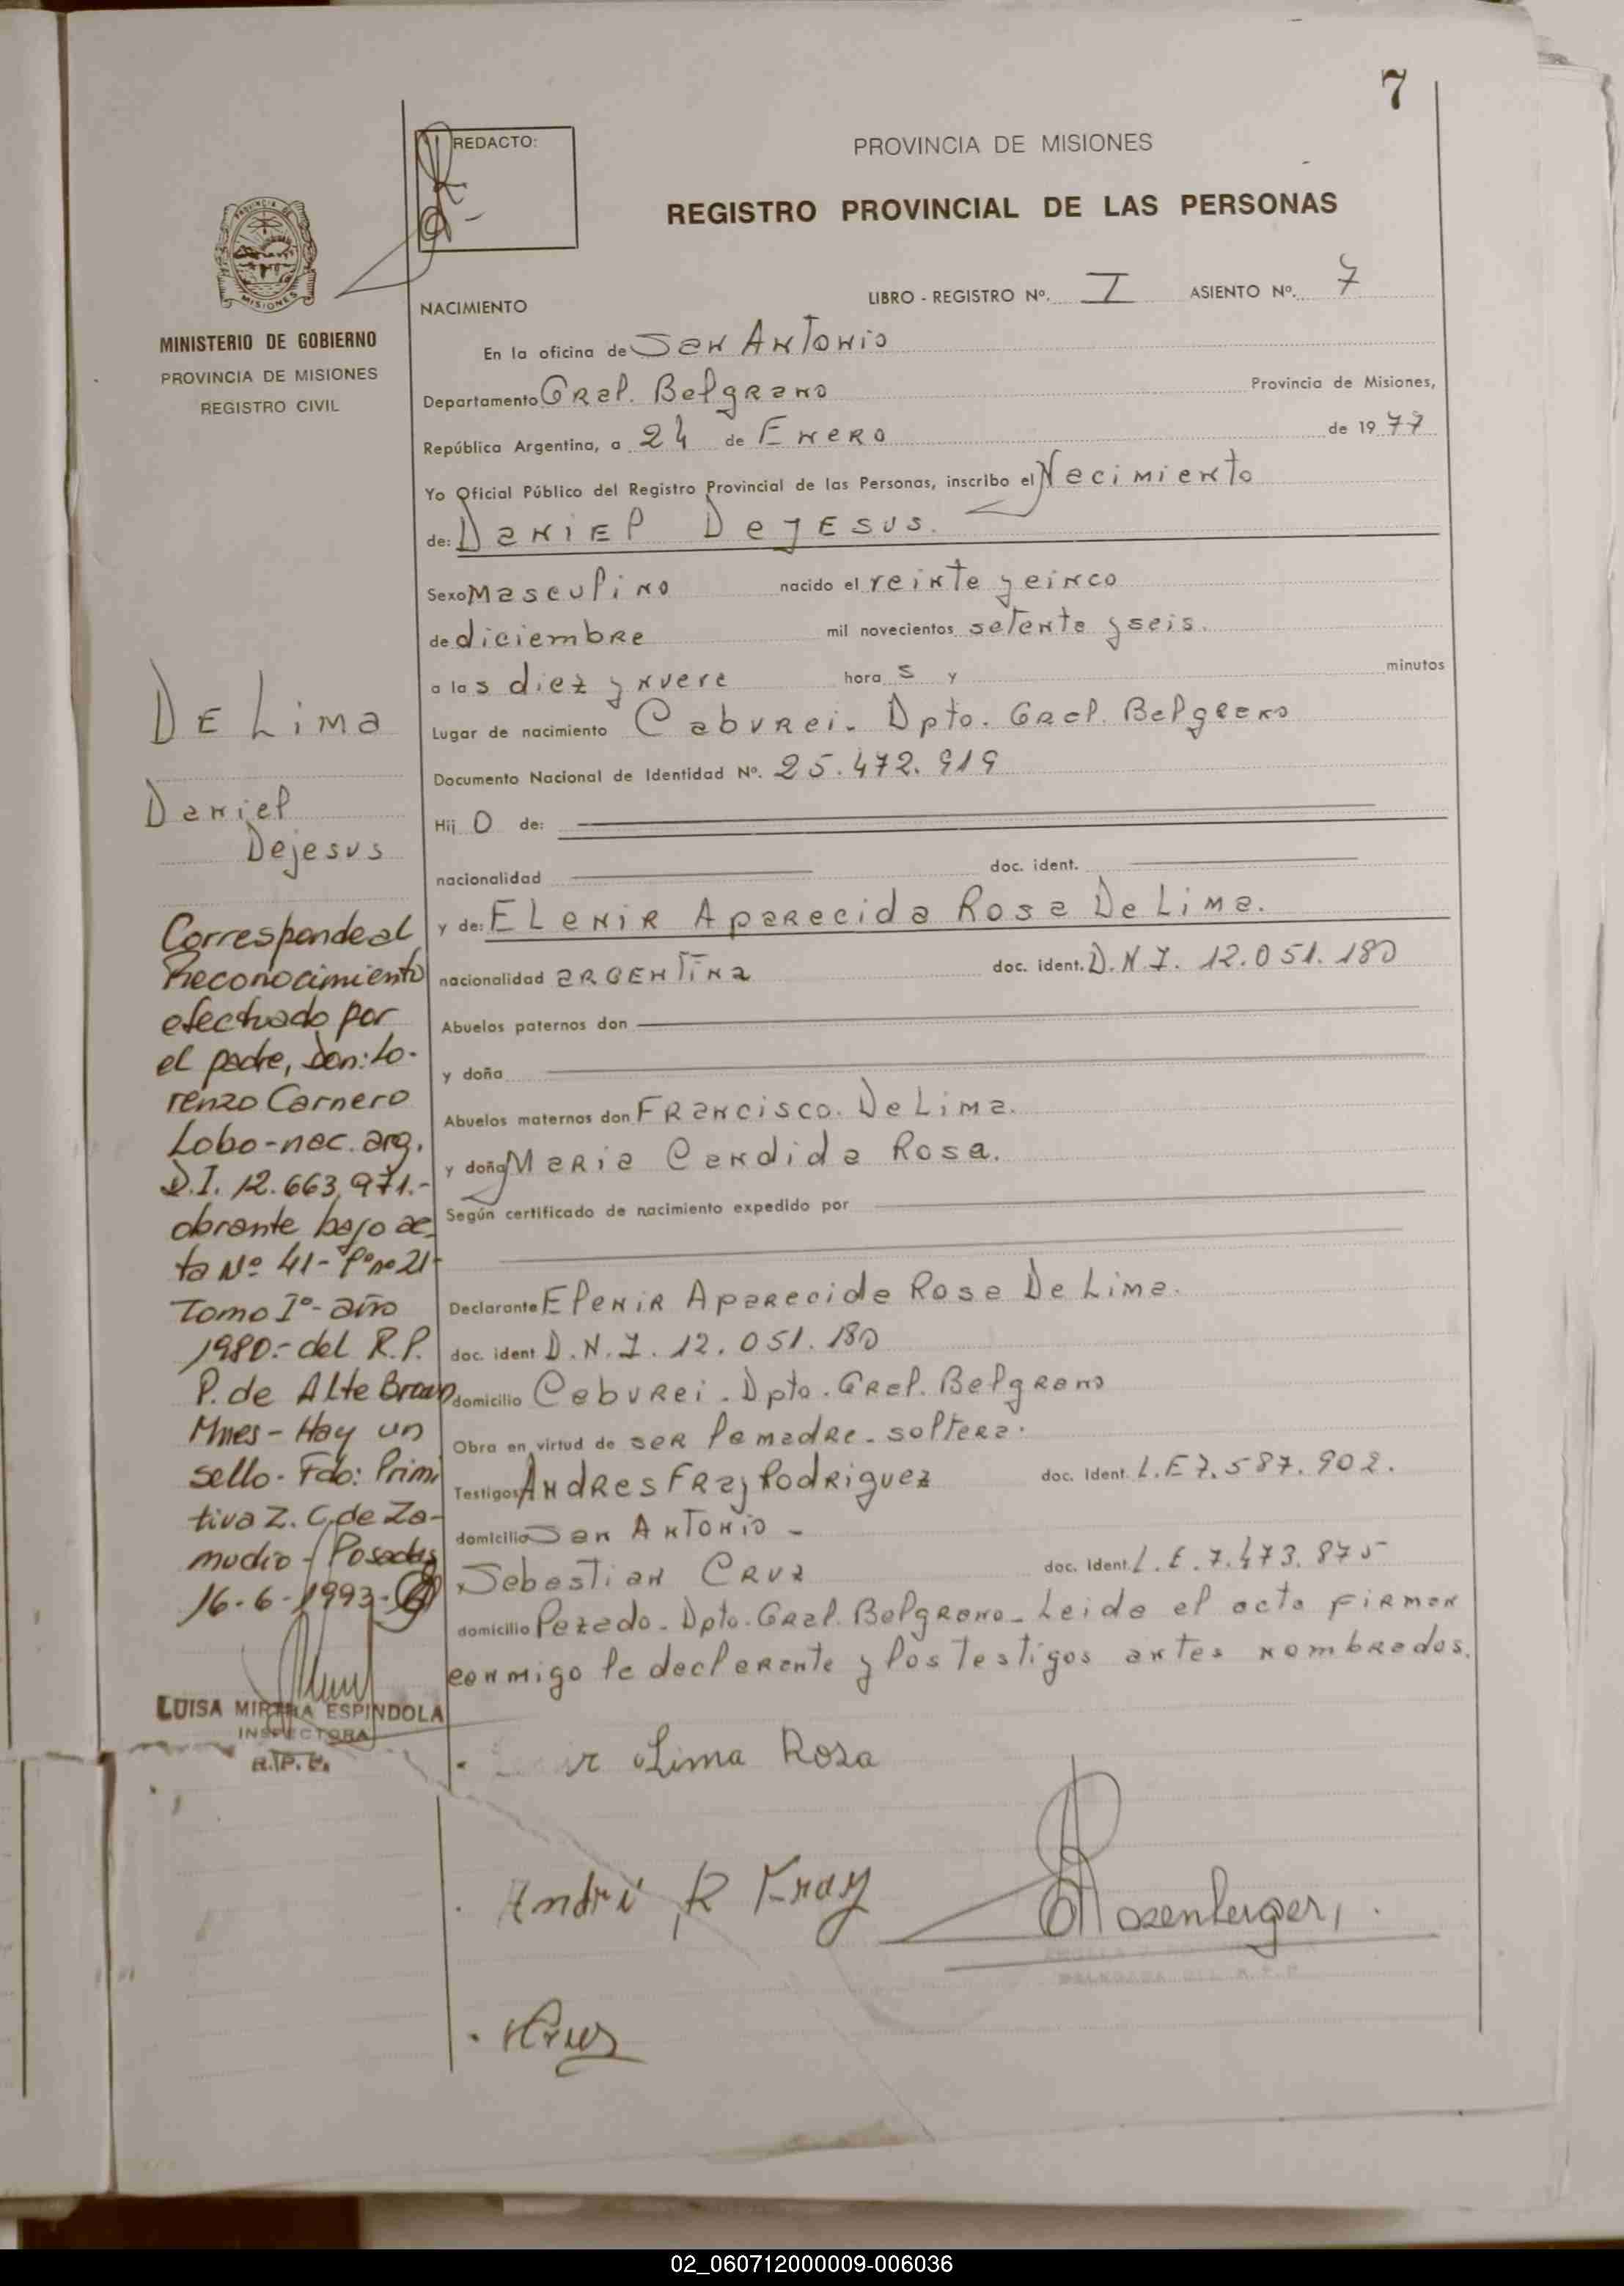 7
REDACTO:
PROVINCIA DE MISIONES
REGISTRO PROVINCIAL DE LAS PERSONAS
PROVINCIA DE
MISIONES
MINISTERIO DE GOBIERNO
PROVINCIA DE MISIONES
REGISTRO CIVIL
NACIMIENTO
LIBRO - REGISTRO Nº. I ASIENTO Nº. 7
En la oficina de San Antonio
Departamento Gral. Belgrano Provincia de Misiones,
República Argentina, a 24 de Enero de 1977
Yo Oficial Público del Registro Provincial de las Personas, inscribo el Nacimiento
de: Daniel Dejesus.
Sexo Masculino nacido el veinte y cinco
de diciembre mil novecientos setenta y seis.
a las diez y nueve horas y minutos
Lugar de nacimiento Caburei. Dpto. Gral. Belgrano
Documento Nacional de Identidad Nº. 25.472.919
Hijo de:
nacionalidad doc. ident.
y de: Elenir Aparecida Rosa De Lima.
nacionalidad argentina doc. ident. D.N.I. 12.051.180
Abuelos paternos don
y doña
Abuelos maternos don Francisco. De Lima.
y doña Maria Candida Rosa.
Según certificado de nacimiento expedido por
Declarante Elenir Aparecida Rosa De Lima.
doc. ident D.N.I. 12.051.180
domicilio Caburei. Dpto. Gral. Belgrano
Obra en virtud de ser la madre. soltera.
Testigos Andres Fray Rodriguez doc. Ident. L.E 7.587.902.
domicilio San Antonio -
Sebastian Cruz doc. Ident. L.E. 7.473.875
domicilio Pozado. Dpto. Gral. Belgrano - Leida el acta firman
conmigo la declarante y los testigos antes nombrados.
De Lima
Daniel
Dejesus
Corresponde al
Reconocimiento
efectuado por
el padre, Don: Lo-
renzo Carnero
Lobo - nac. arg.
D.I. 12.663.971.-
obrante bajo ac-
ta Nº 41 - Fº nº 21-
Tomo Iº - año
1980.- del R.P.
P. de Alte Brown
Mnes - Hay un
sello - Fdo: Primi
tiva Z. C. de Za-
mudio - Posadas
16-6-1993-
LUISA MIRTHA ESPINDOLA
INSPECTORA
R.P.P.
Lima Rosa
André R Fray
Rosenberger
Cruz
02_060712000009-006036